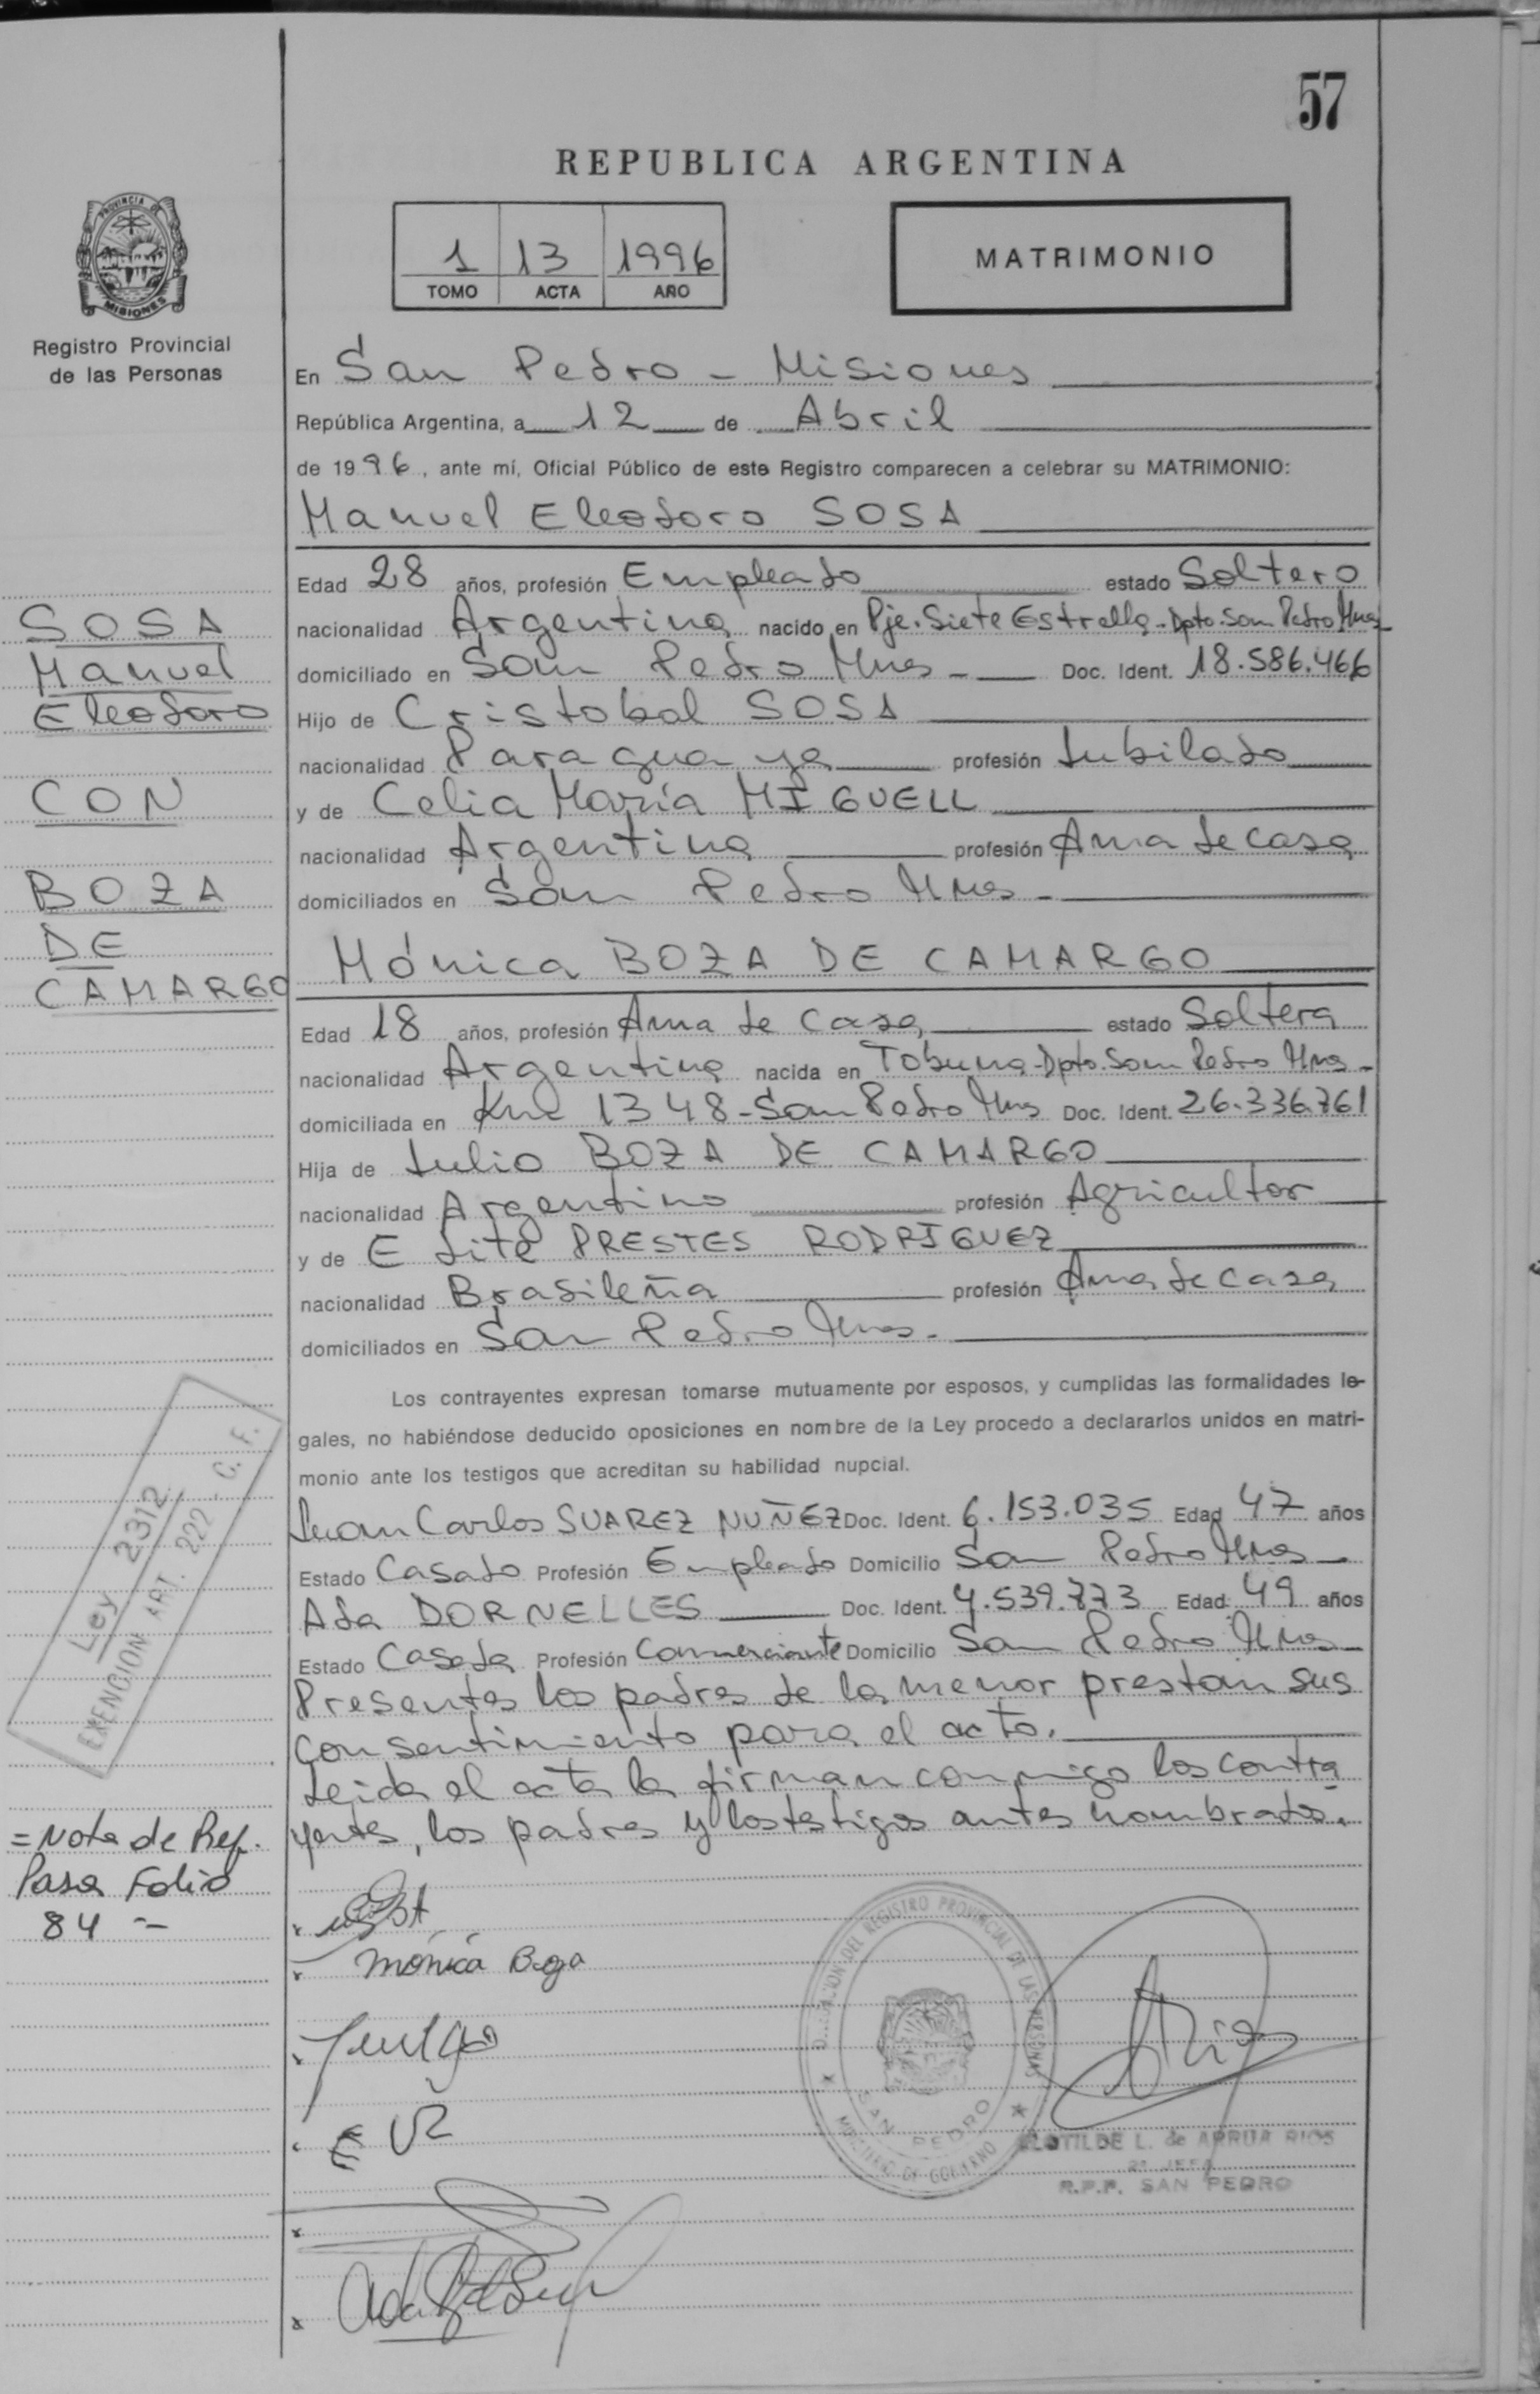 57
REPUBLICA ARGENTINA
1 13 1996
TOMO ACTA AÑO
MATRIMONIO
PROVINCIA DE
MISIONES
Registro Provincial
de las Personas
En San Pedro - Misiones
República Argentina, a 12 de Abril
de 1996, ante mí, Oficial Público de este Registro comparecen a celebrar su MATRIMONIO:
Manuel Eleodoro SOSA
Edad 28 años, profesión Empleado estado Soltero
nacionalidad Argentina nacido en Pje. Siete Estrella - Dpto. San Pedro Mnes
domiciliado en San Pedro Mnes - Doc. Ident. 18.586.466
Hijo de Cristobal SOSA
nacionalidad Paraguaya profesión Jubilado
y de Celia María MIGUELL
nacionalidad Argentina profesión Ama de casa
domiciliados en San Pedro Mnes -
Mónica BOZA DE CAMARGO
Edad 18 años, profesión Ama de casa estado Soltera
nacionalidad Argentina nacida en Tobuna - Dpto. San Pedro Mnes -
domiciliada en Km 1348 - San Pedro Mnes Doc. Ident. 26.336.761
Hija de Julio BOZA DE CAMARGO
nacionalidad Argentino profesión Agricultor
y de E dite PRESTES RODRIGUEZ
nacionalidad Brasileña profesión Ama de casa
domiciliados en San Pedro Mnes -
Los contrayentes expresan tomarse mutuamente por esposos, y cumplidas las formalidades le-
gales, no habiéndose deducido oposiciones en nombre de la Ley procedo a declararlos unidos en matri-
monio ante los testigos que acreditan su habilidad nupcial.
Juan Carlos SUAREZ NUÑEZ Doc. Ident. 6.153.035 Edad 47 años
Estado Casado Profesión Empleado Domicilio San Pedro Mnes
Ada DORNELLES Doc. Ident. 4.539.773 Edad 49 años
Estado Casada Profesión Comerciante Domicilio San Pedro Mnes
Presentes los padres de la menor prestan sus
consentimiento para el acto.
Leida el acta la firman conmigo los contra
yentes, los padres y los testigos antes nombrados.
SOSA
Manuel
Eleodoro
CON
BOZA
DE
CAMARGO
Ley 2312
EXENCION ART. 222 - C. F.
= Nota de Ref.
Pasa Folio
84 =
Mónica Boza
DEL REGISTRO PROVINCIAL DE LAS PERSONAS
SAN PEDRO
MINISTERIO DE GOBIERNO
CLOTILDE L. de ARRUA RIOS
2° JEFA
R.P.P. SAN PEDRO